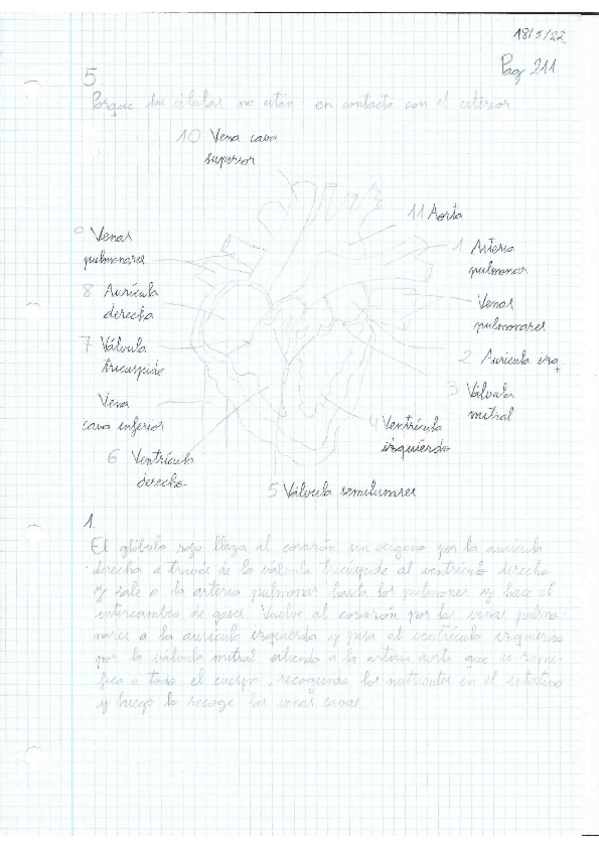 18/5/22
Pag 211
5.
Porque las células no están en contacto con el exterior
10 Vena cava
superior
11 Aorta
9 Venas
pulmonares
1 Arteria
pulmonar
8 Aurícula
derecha
Venas
pulmonares
7 Válvula
tricuspide
2 Auricula izq
3 Válvula
mitral
Vena
cava inferior
4 Ventrículo
izquierdo
6 Ventrículo
derecho
5 Válvula semilunares
1.
El glóbulo rojo llega al corazón sin oxigeno por la aurícula
derecha a través de la válvula tricuspide al ventriculo derecho
y sale a la arteria pulmonar hasta los pulmones y hace el
intercambio de gases. Vuelve al corazón por las venas pulmo-
nares a la aurícula izquierda y pasa al ventrículo izquierdo
por la válvula mitral saliendo a la arteria aorta que se rami-
fica a todo el cuerpo, recogiendo los nutrientes en el intestino
y luego lo recoge las venas cavas